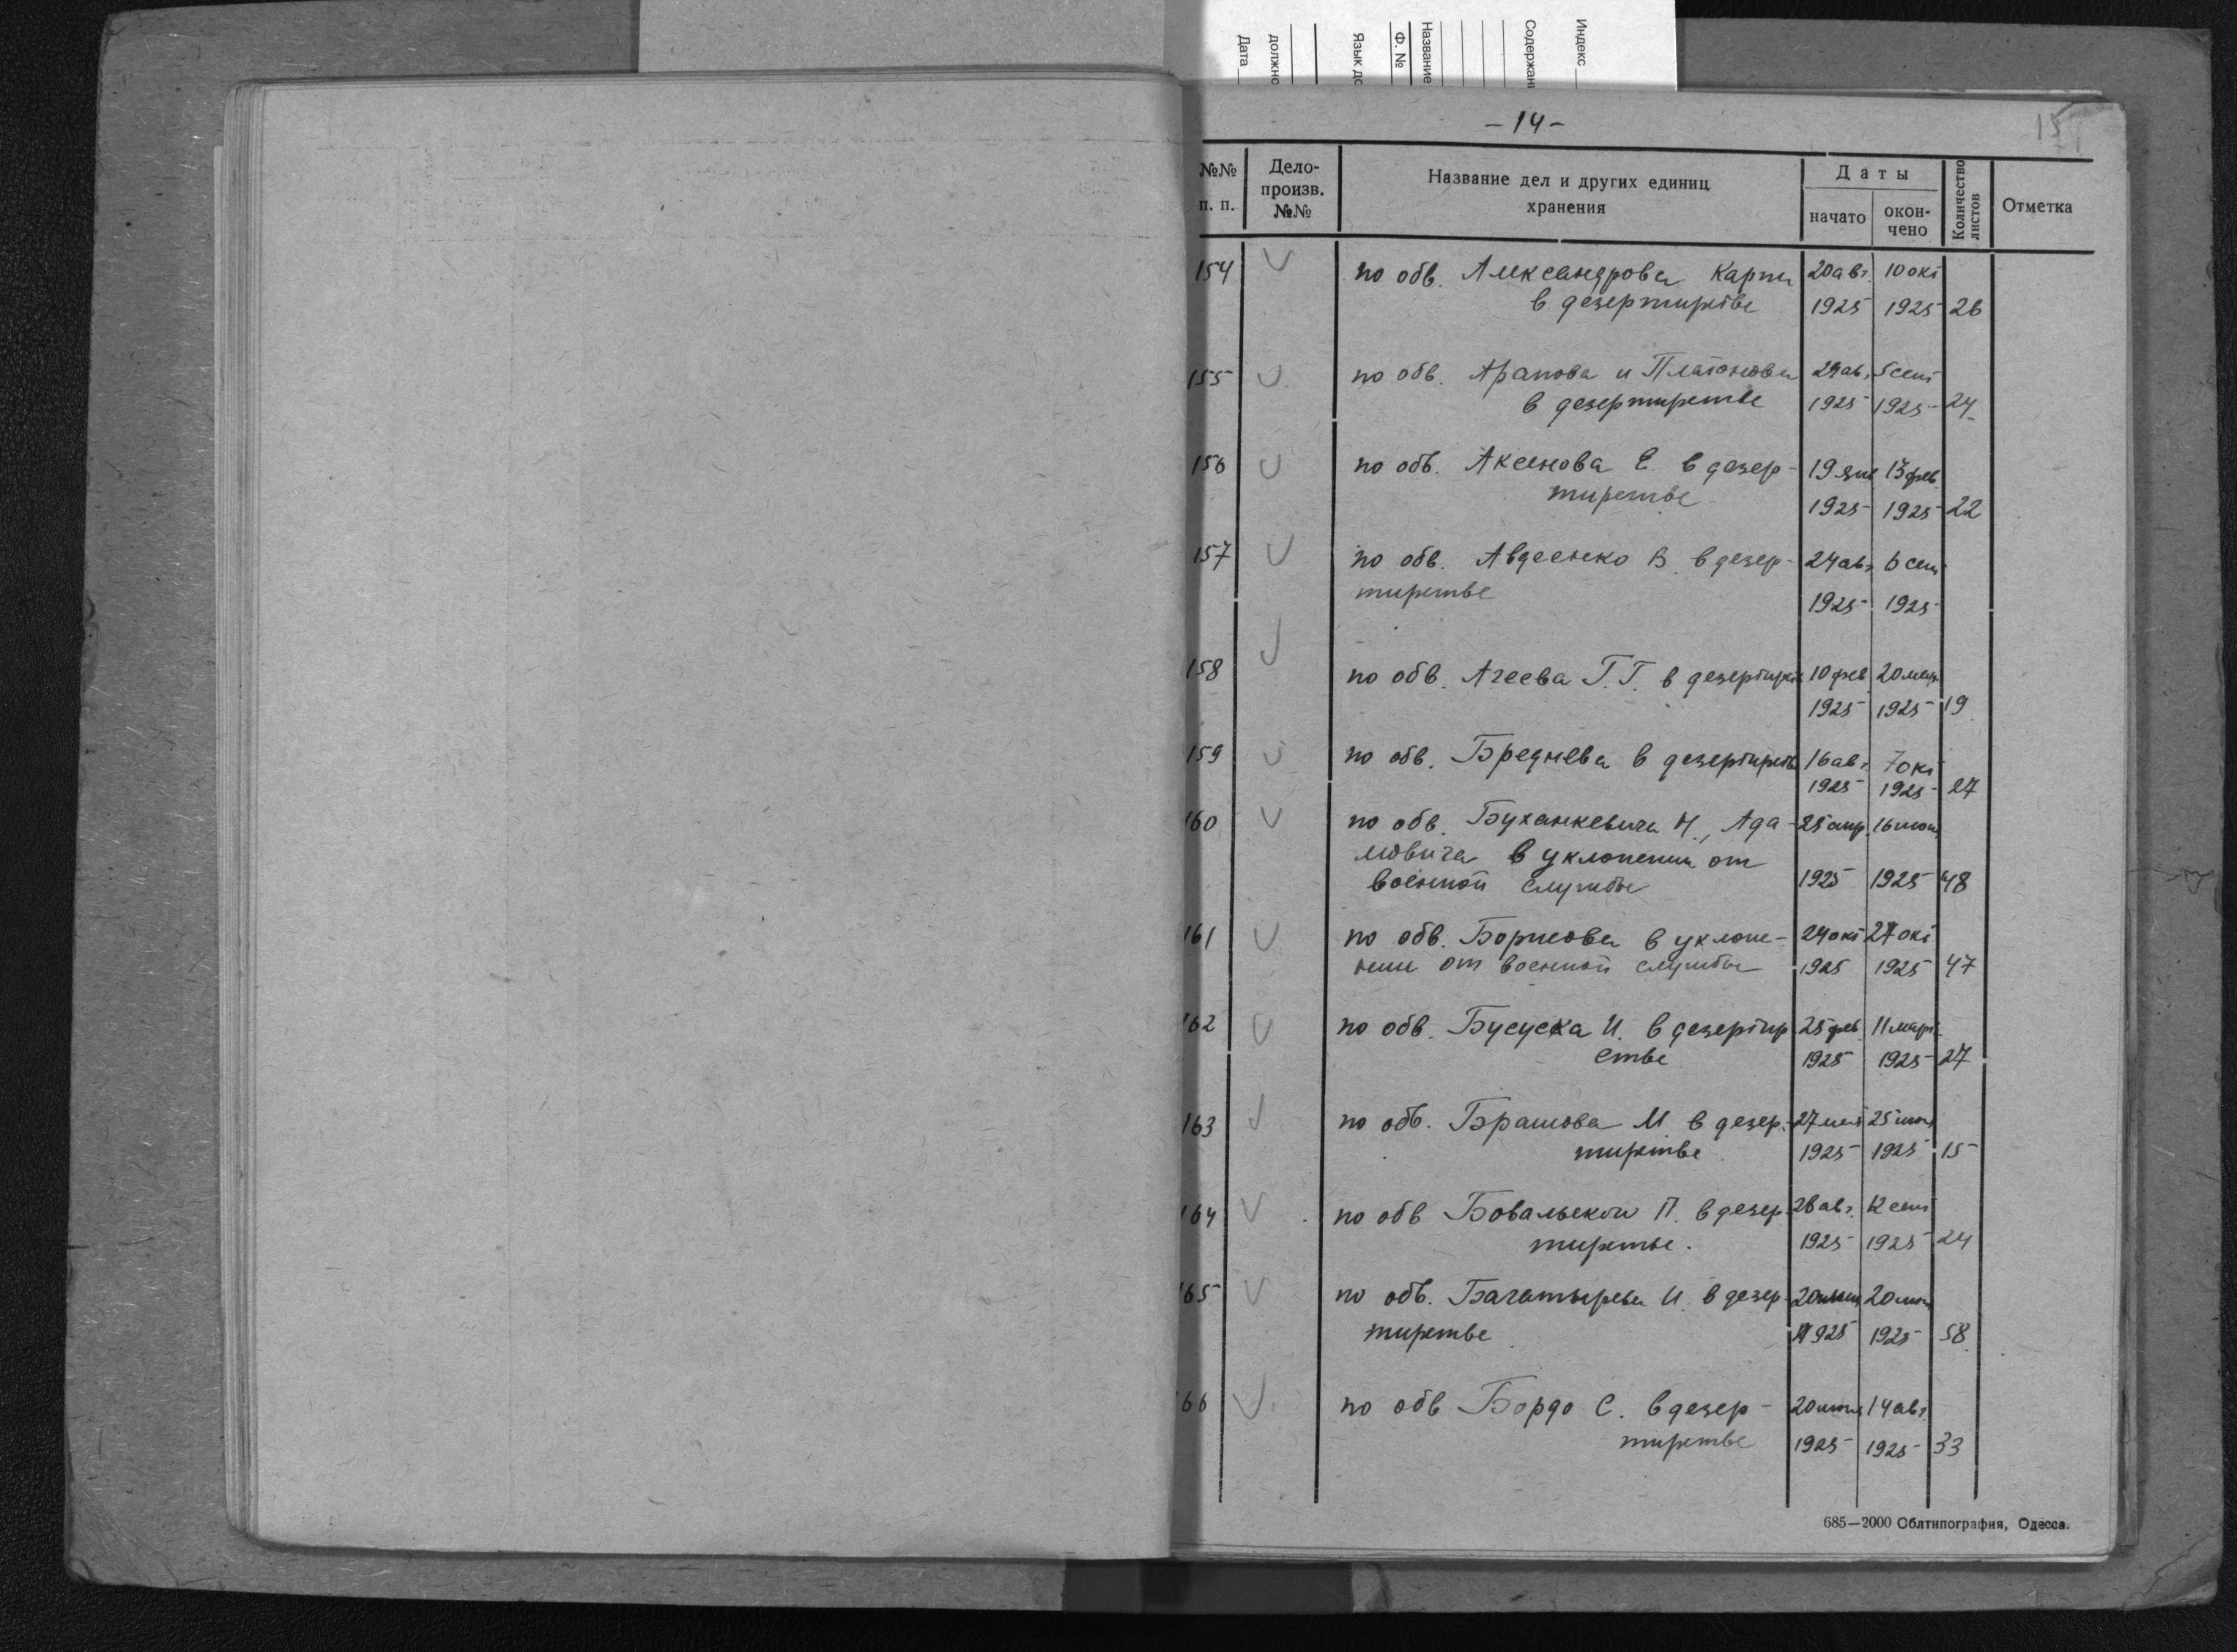 Индекс
Содержан
Название
Ф. №
Язык до
должно
Дата
– 14 –
15
№№ п. п.
Дело-произв. №№
Название дел и других единиц хранения
Даты
начато
окон-чено
Количество листов
Отметка
154 по обв. Александрова Карпа 20 авг. 10 окт
в дезертирстве 1925 1925 26
155 по обв. Арапова и Платонова 29 авг. 5 сент
в дезертирстве 1925 1925 24
156 по обв. Аксенова Е. в дезер- 19 янв 13 фев
тирстве 1925 1925 22
157 по обв. Авдеенко В. в дезер- 24 авг. 6 сент
тирстве 1925 1925
158 по обв. Агеева Г. Г. в дезертирств 10 фев 20 мар
1925 1925 19
159 по обв. Бреднева в дезертирств 16 авг. 7 окт
1925 1925 27
160 по обв. Буханкевича И., Ада- 25 апр. 16 июн
мовича в уклонении от
военной службы 1925 1925 48
161 по обв. Борисова в уклоне- 24 окт 27 окт
нии от военной службы 1925 1925 47
162 по обв. Бусуска И. в дезертир 25 фев. 11 март
стве 1925 1925 27
163 по обв. Брашова М в дезер- 27 мая 25 июн
тирстве 1925 1925 15
164 по обв Бовальской П. в дезер- 28 авг. 12 сент
тирстве. 1925 1925 24
165 по обв. Багатырева И. в дезер- 20 20
тирстве 1925 1925 58
166 по обв Бордо С. в дезер- 20 14 авг.
тирстве 1925 1925 33
685—2000 Облтипография, Одесса.